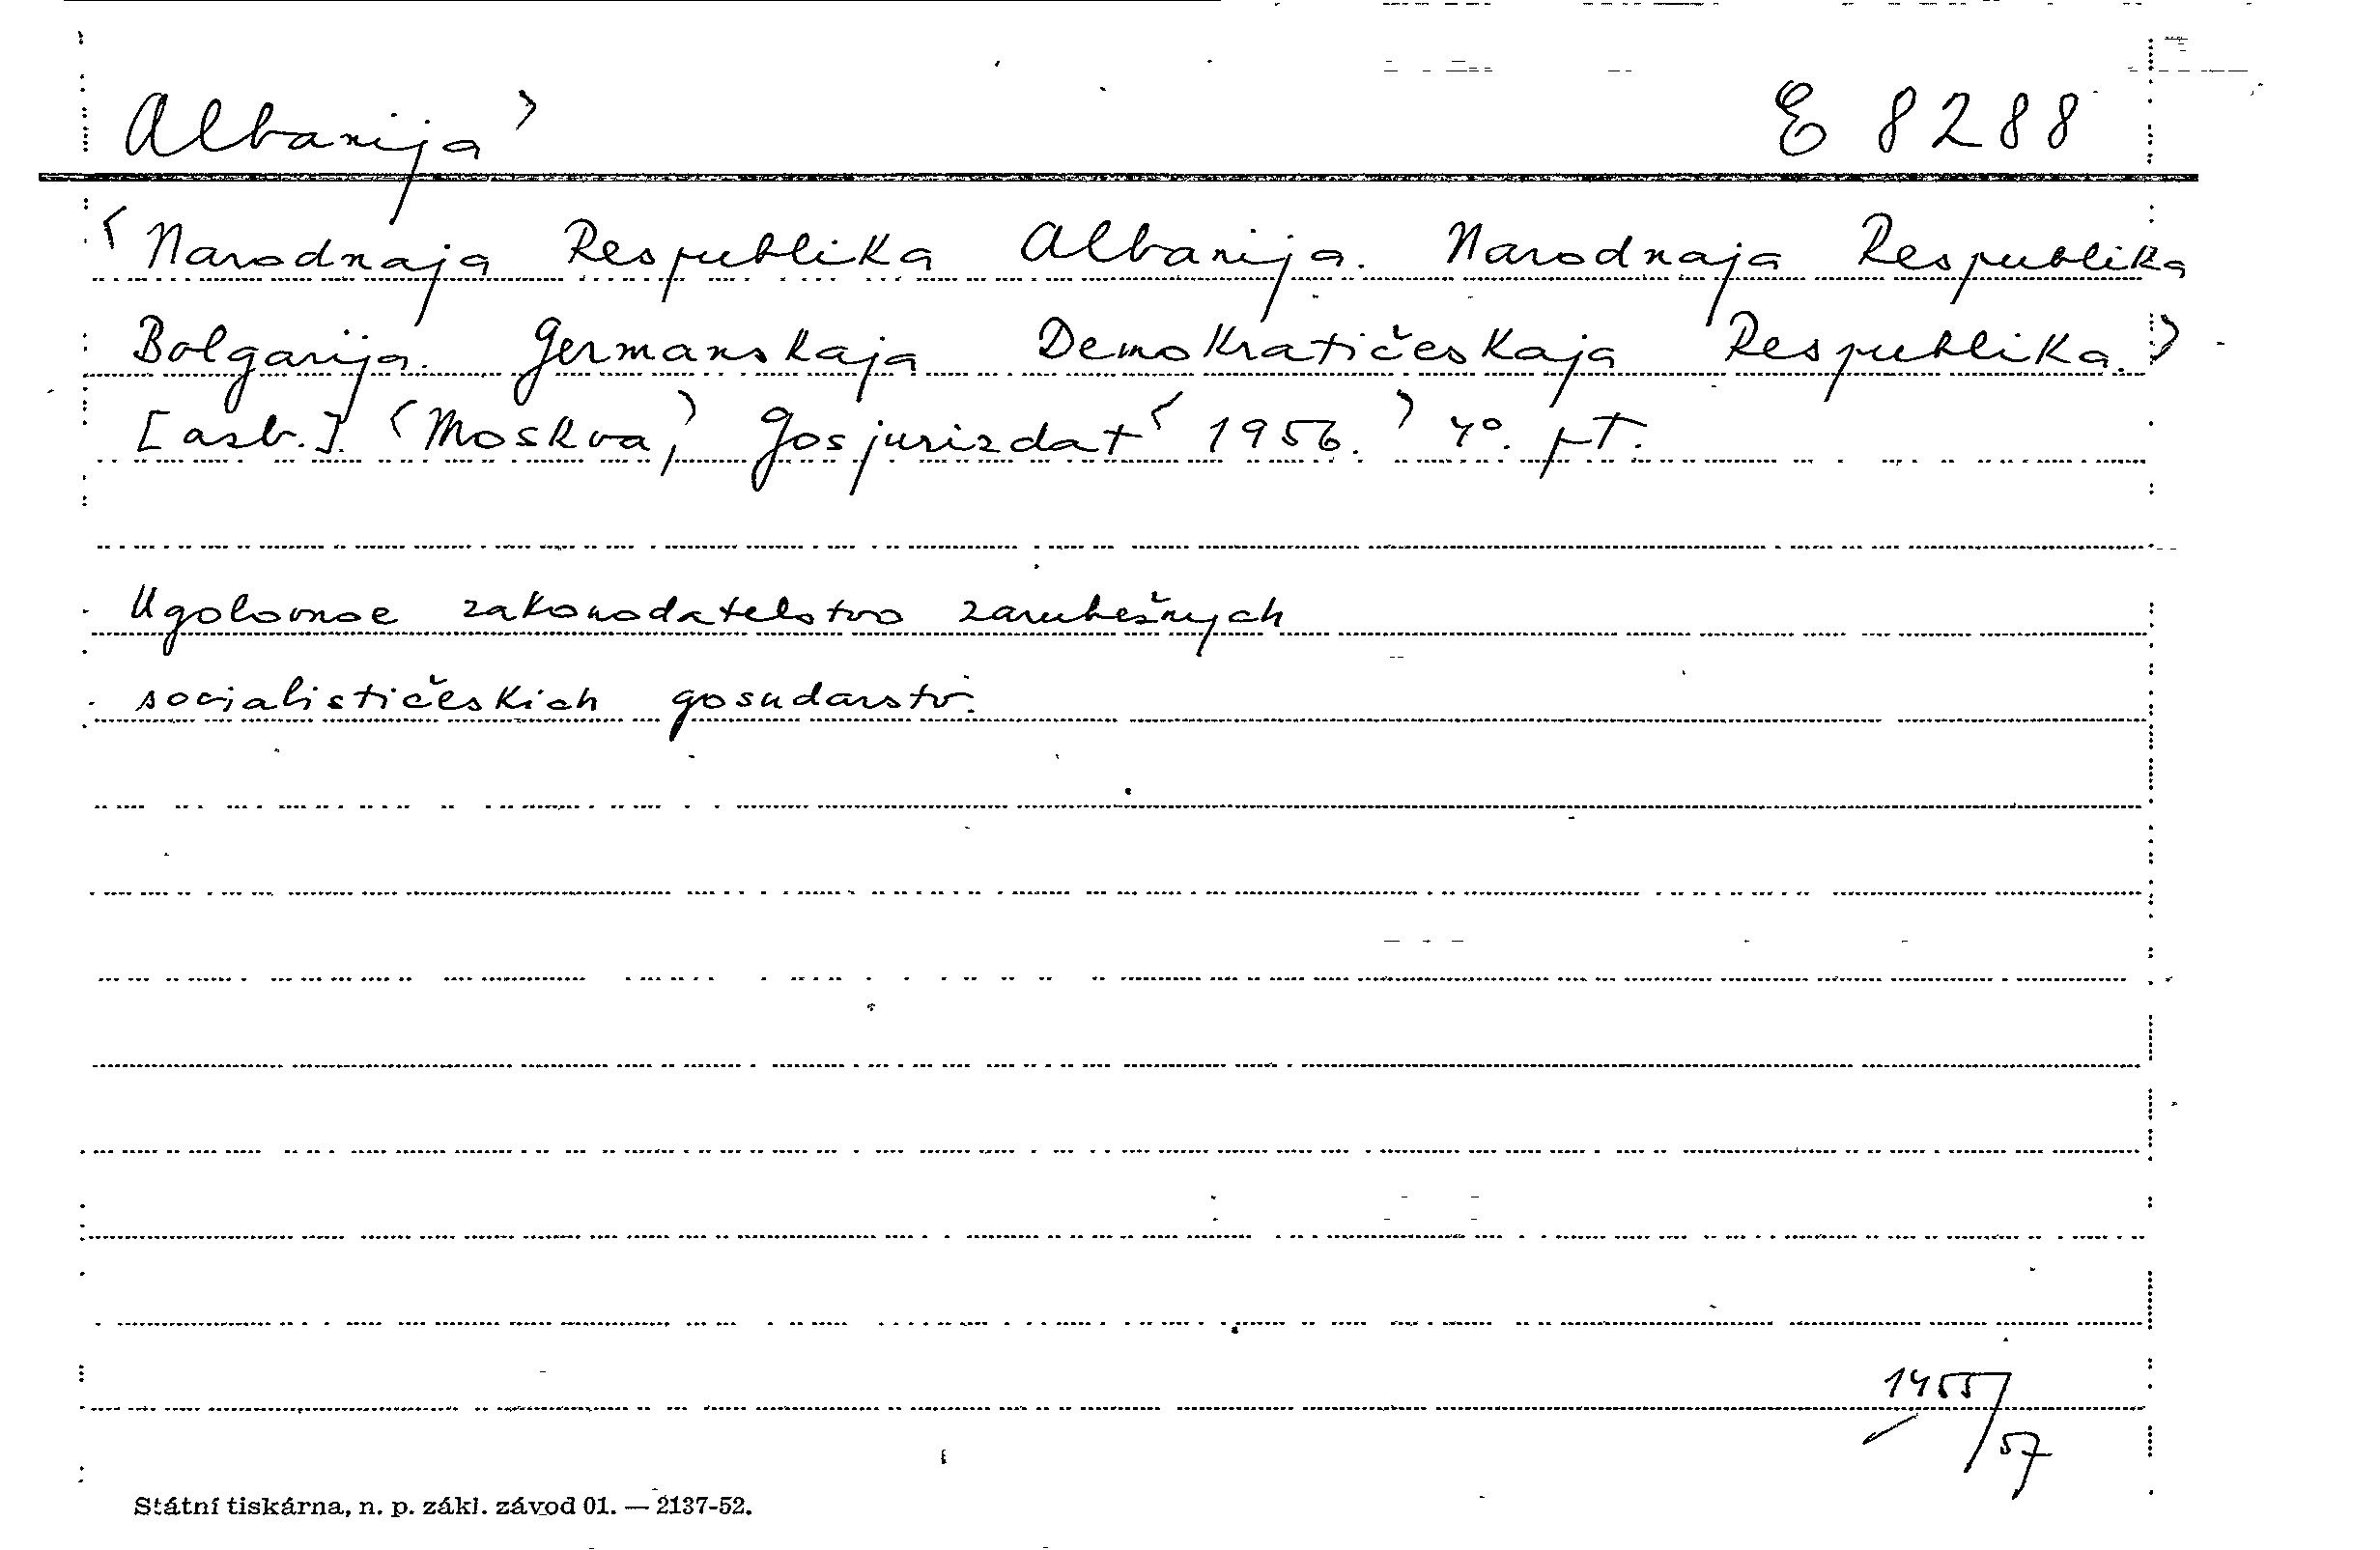 Albanija> E 8288
<Narodnaja Respublika Albanija. Narodnaja Respublika
Bolgarija. Germanskaja Demokratičeskaja Respublika.>
[asb.]. <Moskva,> Gosjurizdat <1956.> 4°. pT.
Ugolovnoe zakonodatelstvo zarubežnych
socialističeskich gosudarstv.
1455/57
Státní tiskárna, n. p. zákl. závod 01. — 2137-52.